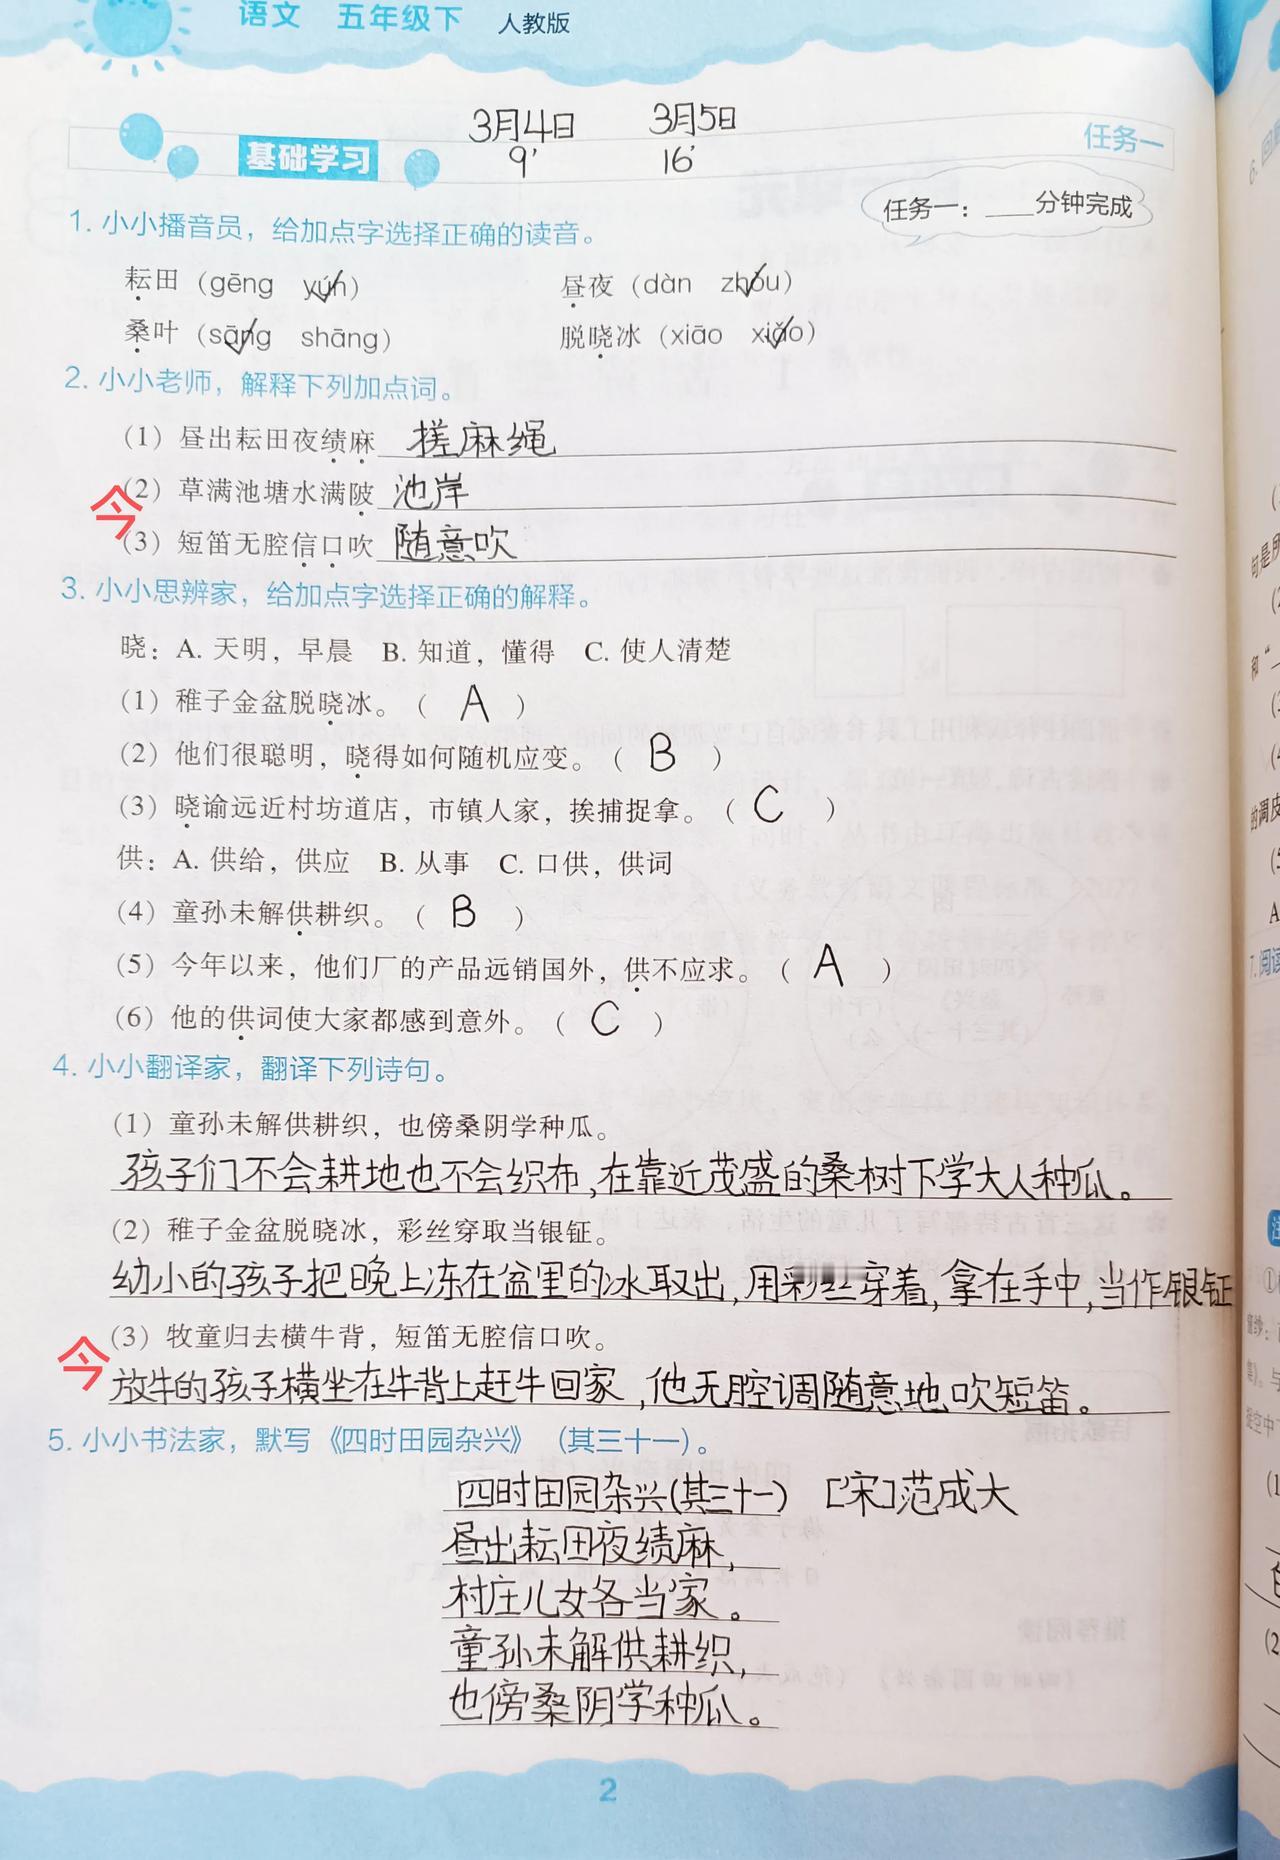 语文 五年级下 人教版
3月4日 3月5日
基础学习 9′ 16′ 任务一
任务一：____分钟完成
1. 小小播音员，给加点字选择正确的读音。
耘田（gēng yún） 昼夜（dàn zhòu）
桑叶（sāng shāng） 脱晓冰（xiāo xiǎo）
2. 小小老师，解释下列加点词。
（1）昼出耘田夜绩麻 搓麻绳
今
（2）草满池塘水满陂 池岸
（3）短笛无腔信口吹 随意吹
3. 小小思辨家，给加点字选择正确的解释。
晓：A. 天明，早晨 B. 知道，懂得 C. 使人清楚
（1）稚子金盆脱晓冰。（ A ）
（2）他们很聪明，晓得如何随机应变。（ B ）
（3）晓谕远近村坊道店，市镇人家，挨捕捉拿。（ C ）
供：A. 供给，供应 B. 从事 C. 口供，供词
（4）童孙未解供耕织。（ B ）
（5）今年以来，他们厂的产品远销国外，供不应求。（ A ）
（6）他的供词使大家都感到意外。（ C ）
4. 小小翻译家，翻译下列诗句。
（1）童孙未解供耕织，也傍桑阴学种瓜。
孩子们不会耕地也不会织布，在靠近茂盛的桑树下学大人种瓜。
（2）稚子金盆脱晓冰，彩丝穿取当银钲。
幼小的孩子把晚上冻在盆里的冰取出，用彩丝穿着，拿在手中，当作银钲
（3）牧童归去横牛背，短笛无腔信口吹。
今
放牛的孩子横坐在牛背上赶牛回家，他无腔调随意地吹短笛。
5. 小小书法家，默写《四时田园杂兴》（其三十一）。
四时田园杂兴（其三十一） [宋]范成大
昼出耘田夜绩麻，
村庄儿女各当家。
童孙未解供耕织，
也傍桑阴学种瓜。
2